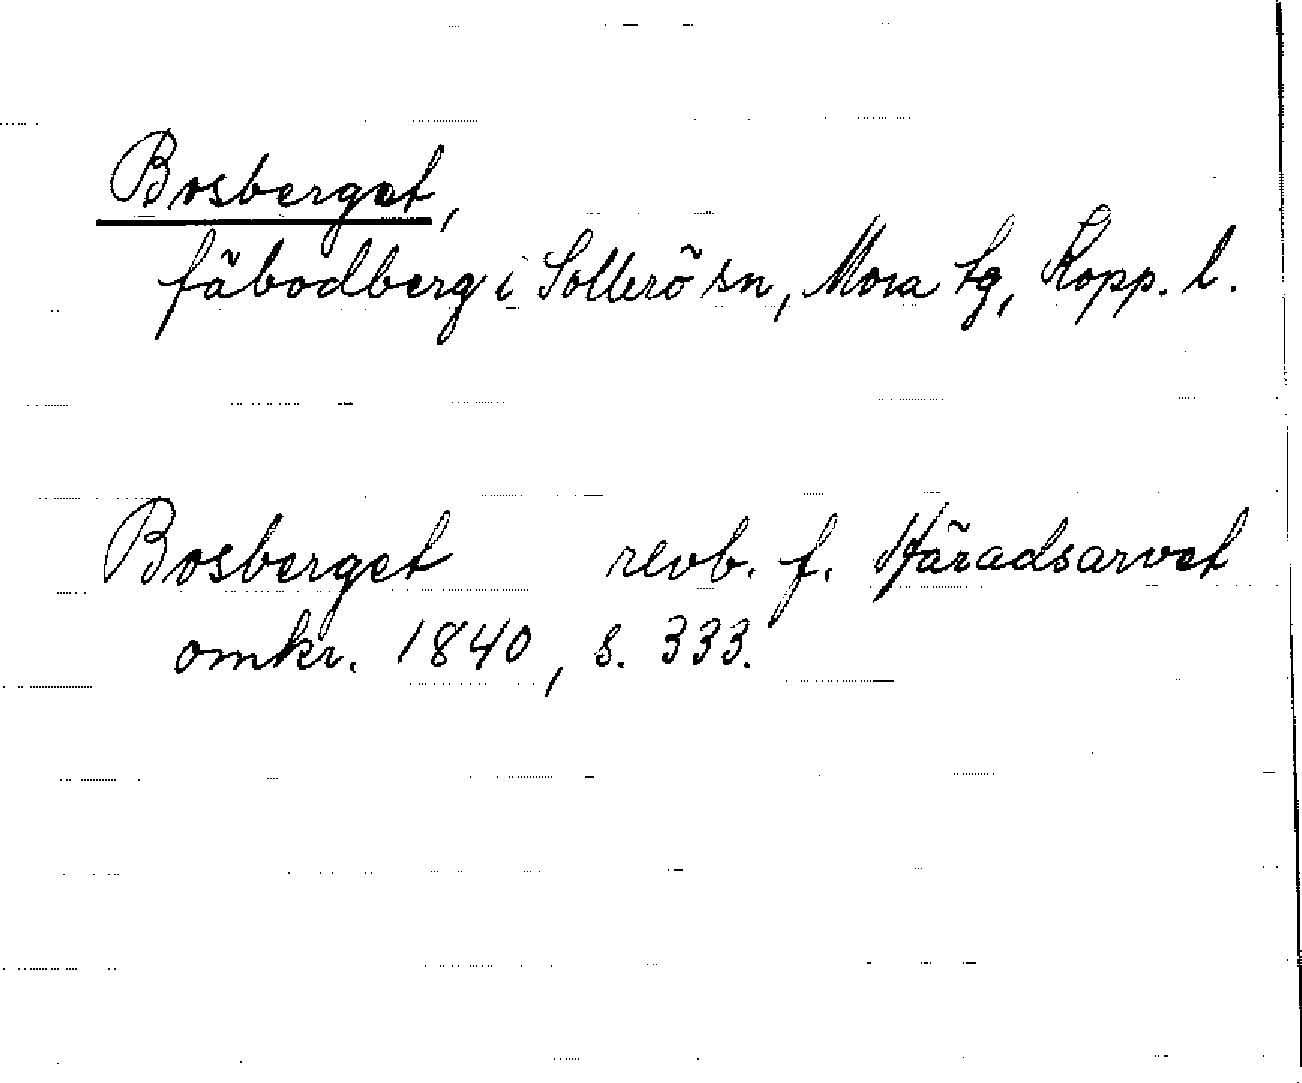 Bosberget,
fäbodberg i Sollerö sn, Mora tg, Kopp. l.
Bosberget revb. f. Häradsarvet
omkr. 1840, s. 333.